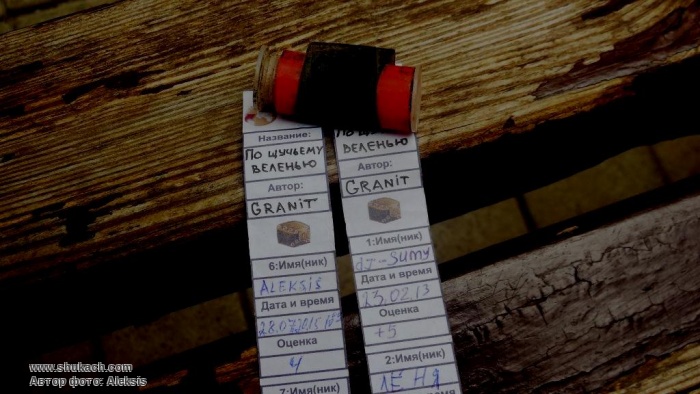 Название:
ПО ЩУЧЬЕМУ
ВЕЛЕНЬЮ
Автор:
GRANIT
6:Имя(ник)
ALEKSIS
Дата и время
28.07.2015
Оценка
4
7:Имя(ник)
ПО ЩУЧЬЕМУ
ВЕЛЕНЬЮ
Автор:
GRANIT
1:Имя(ник)
dJ-SUMY
Дата и время
23.02.13
Оценка
+5
2:Имя(ник)
ЛЕНЯ
Дата и время
www.shukach.com
Автор фото: Aleksis